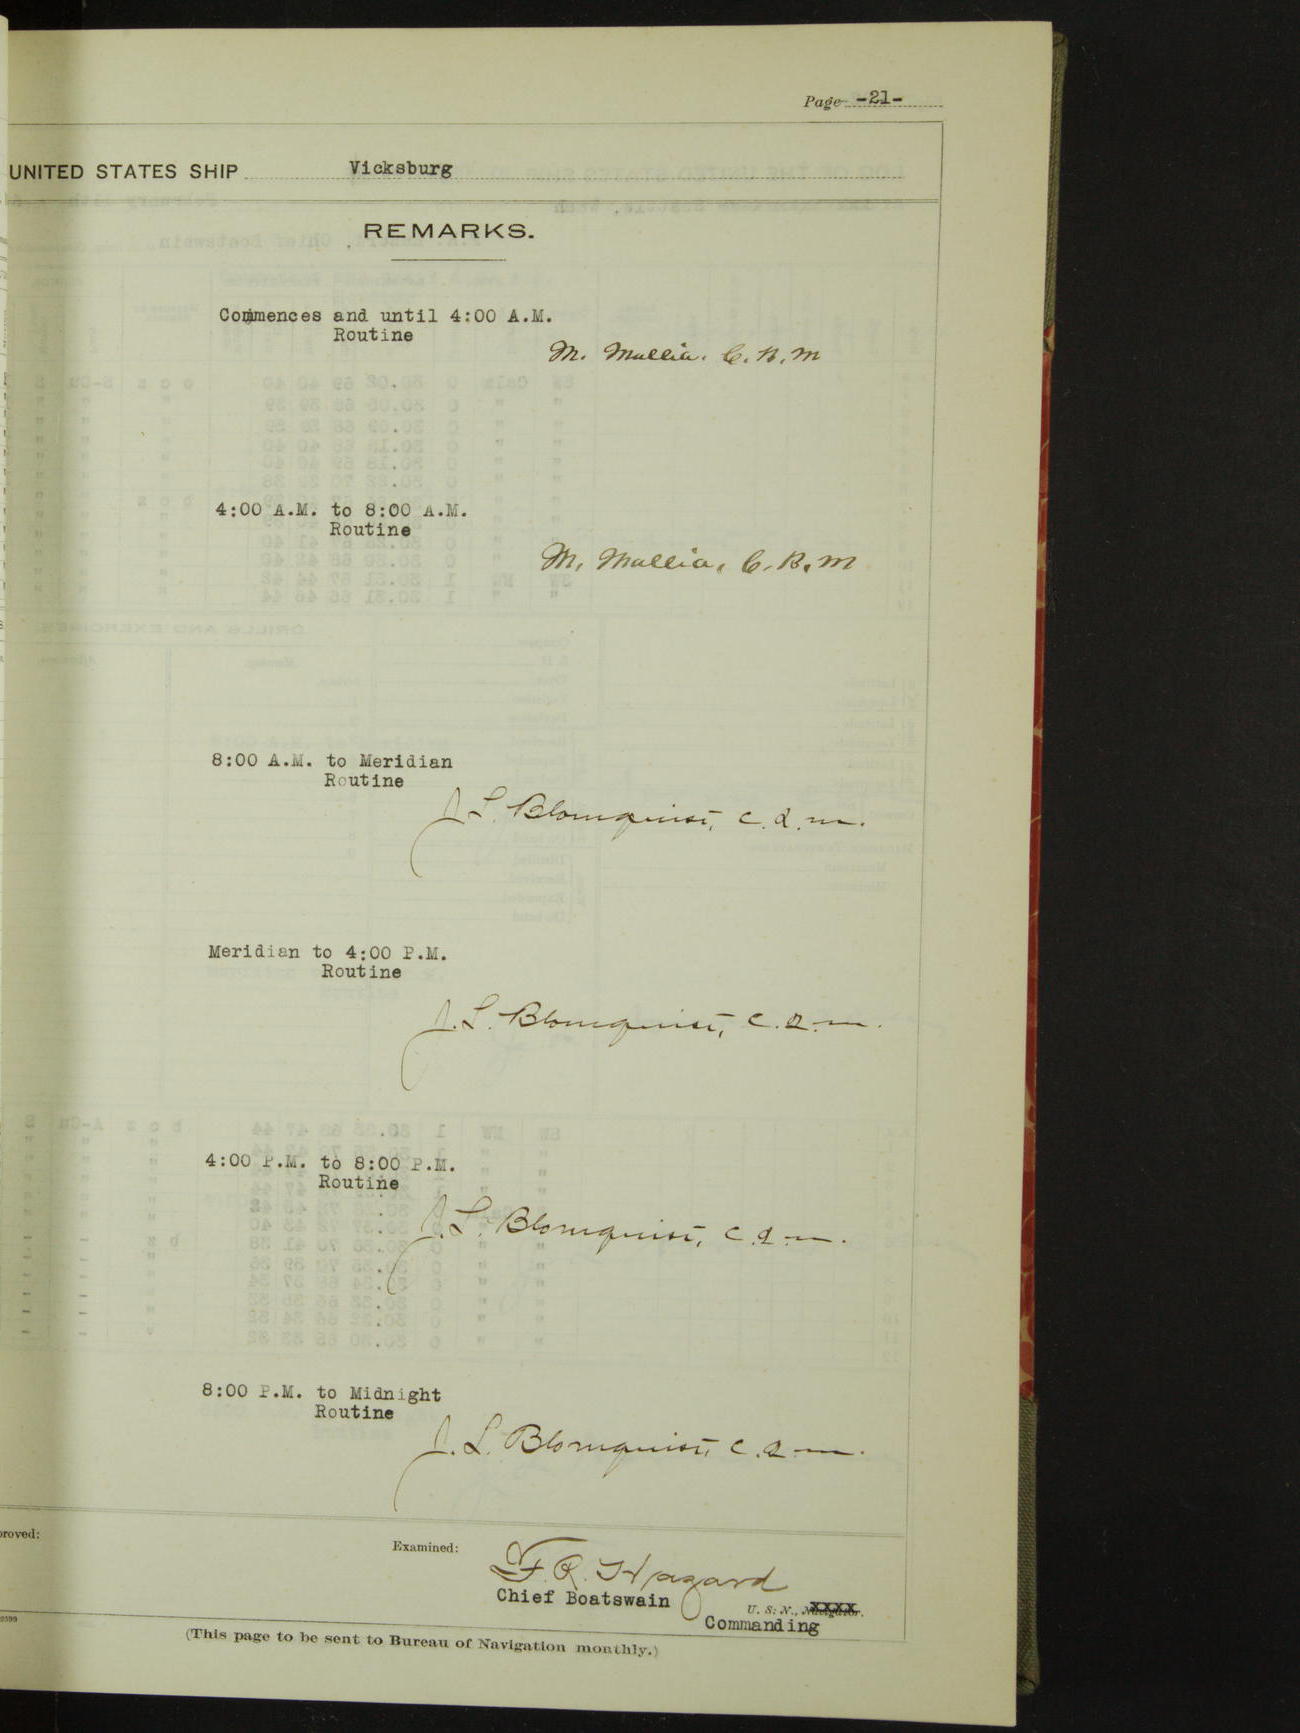 Page -21-
UNITED STATES SHIP Vicksburg
REMARKS.
Commences and until 4:00 A.M.
Routine
M. Mallia. C.B.M
4:00 A.M. to 8:00 A.M.
Routine
M. Mallia, C.B.M
8:00 A.M. to Meridian
Routine
J.L. Blomquist, C.Q.M.
Meridian to 4:00 P.M.
Routine
J.L. Blomquist, C.Q.M.
4:00 P.M. to 8:00 P.M.
Routine
J.L. Blomquist, C.Q.M.
8:00 P.M. to Midnight
Routine
J.L. Blomquist, C.Q.M.
proved:
Examined:
F.R. Hazard
Chief Boatswain
U. S. N., Navigator.
Commanding
(This page to be sent to Bureau of Navigation monthly.)